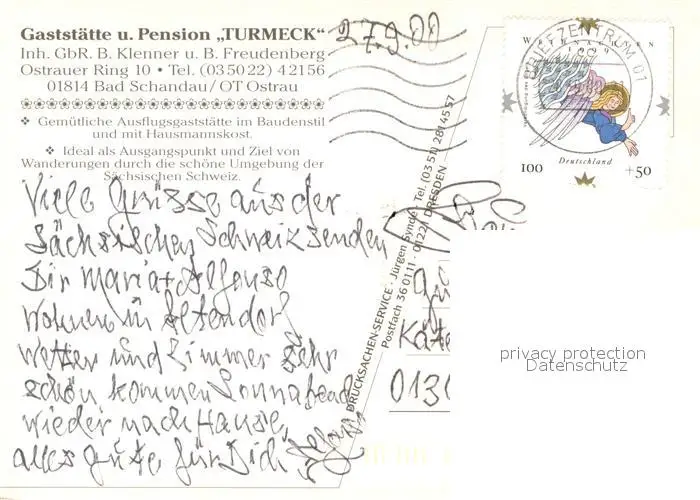 Gaststätte u. Pension „TURMECK“
Inh. GbR. B. Klenner u. B. Freudenberg
Ostrauer Ring 10 • Tel. (03 50 22) 4 21 56
01814 Bad Schandau/OT Ostrau
❖ Gemütliche Ausflugsgaststätte im Baudenstil
und mit Hausmannskost.
❖ Ideal als Ausgangspunkt und Ziel von
Wanderungen durch die schöne Umgebung der
Sächsischen Schweiz.
27.9.00
Viele Grüsse aus der
Sächsischen Schweiz senden
Dir Maria + Alfonso
wohnen in Altendorf
Wetter und Zimmer sehr
schön kommen Sonnabend
wieder nach Hause,
alles gute für Dich
DRUCKSACHEN-SERVICE · Jürgen Synde · Tel. (03 51) 2 81 45 57
Postfach 36 01 11 · 01221 DRESDEN
WEIHNACHTEN
1999
BRIEFZENTRUM 01
100 Deutschland +50
Käte
013
privacy protection
Datenschutz